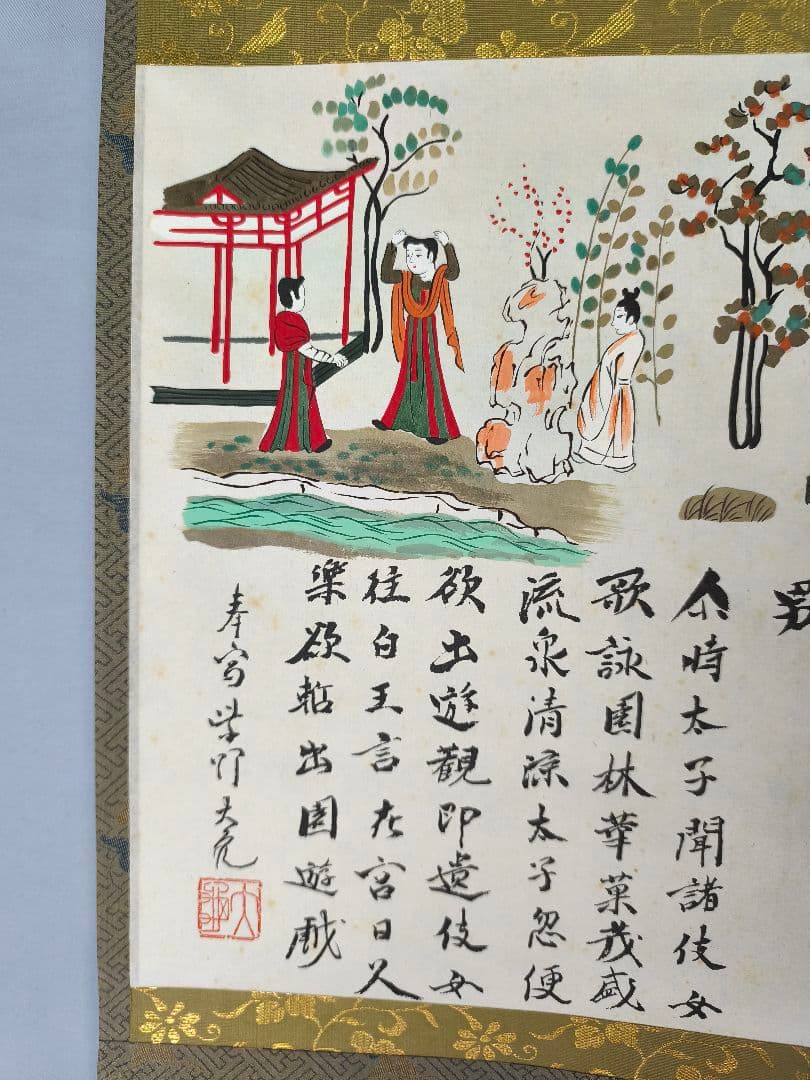 尒時太子聞諸伎女
歌詠園林華菓茂盛
流泉清涼太子忽便
欲出遊觀即遣伎女
往白王言在宮日久
樂欲暫出園遊戯
奉写